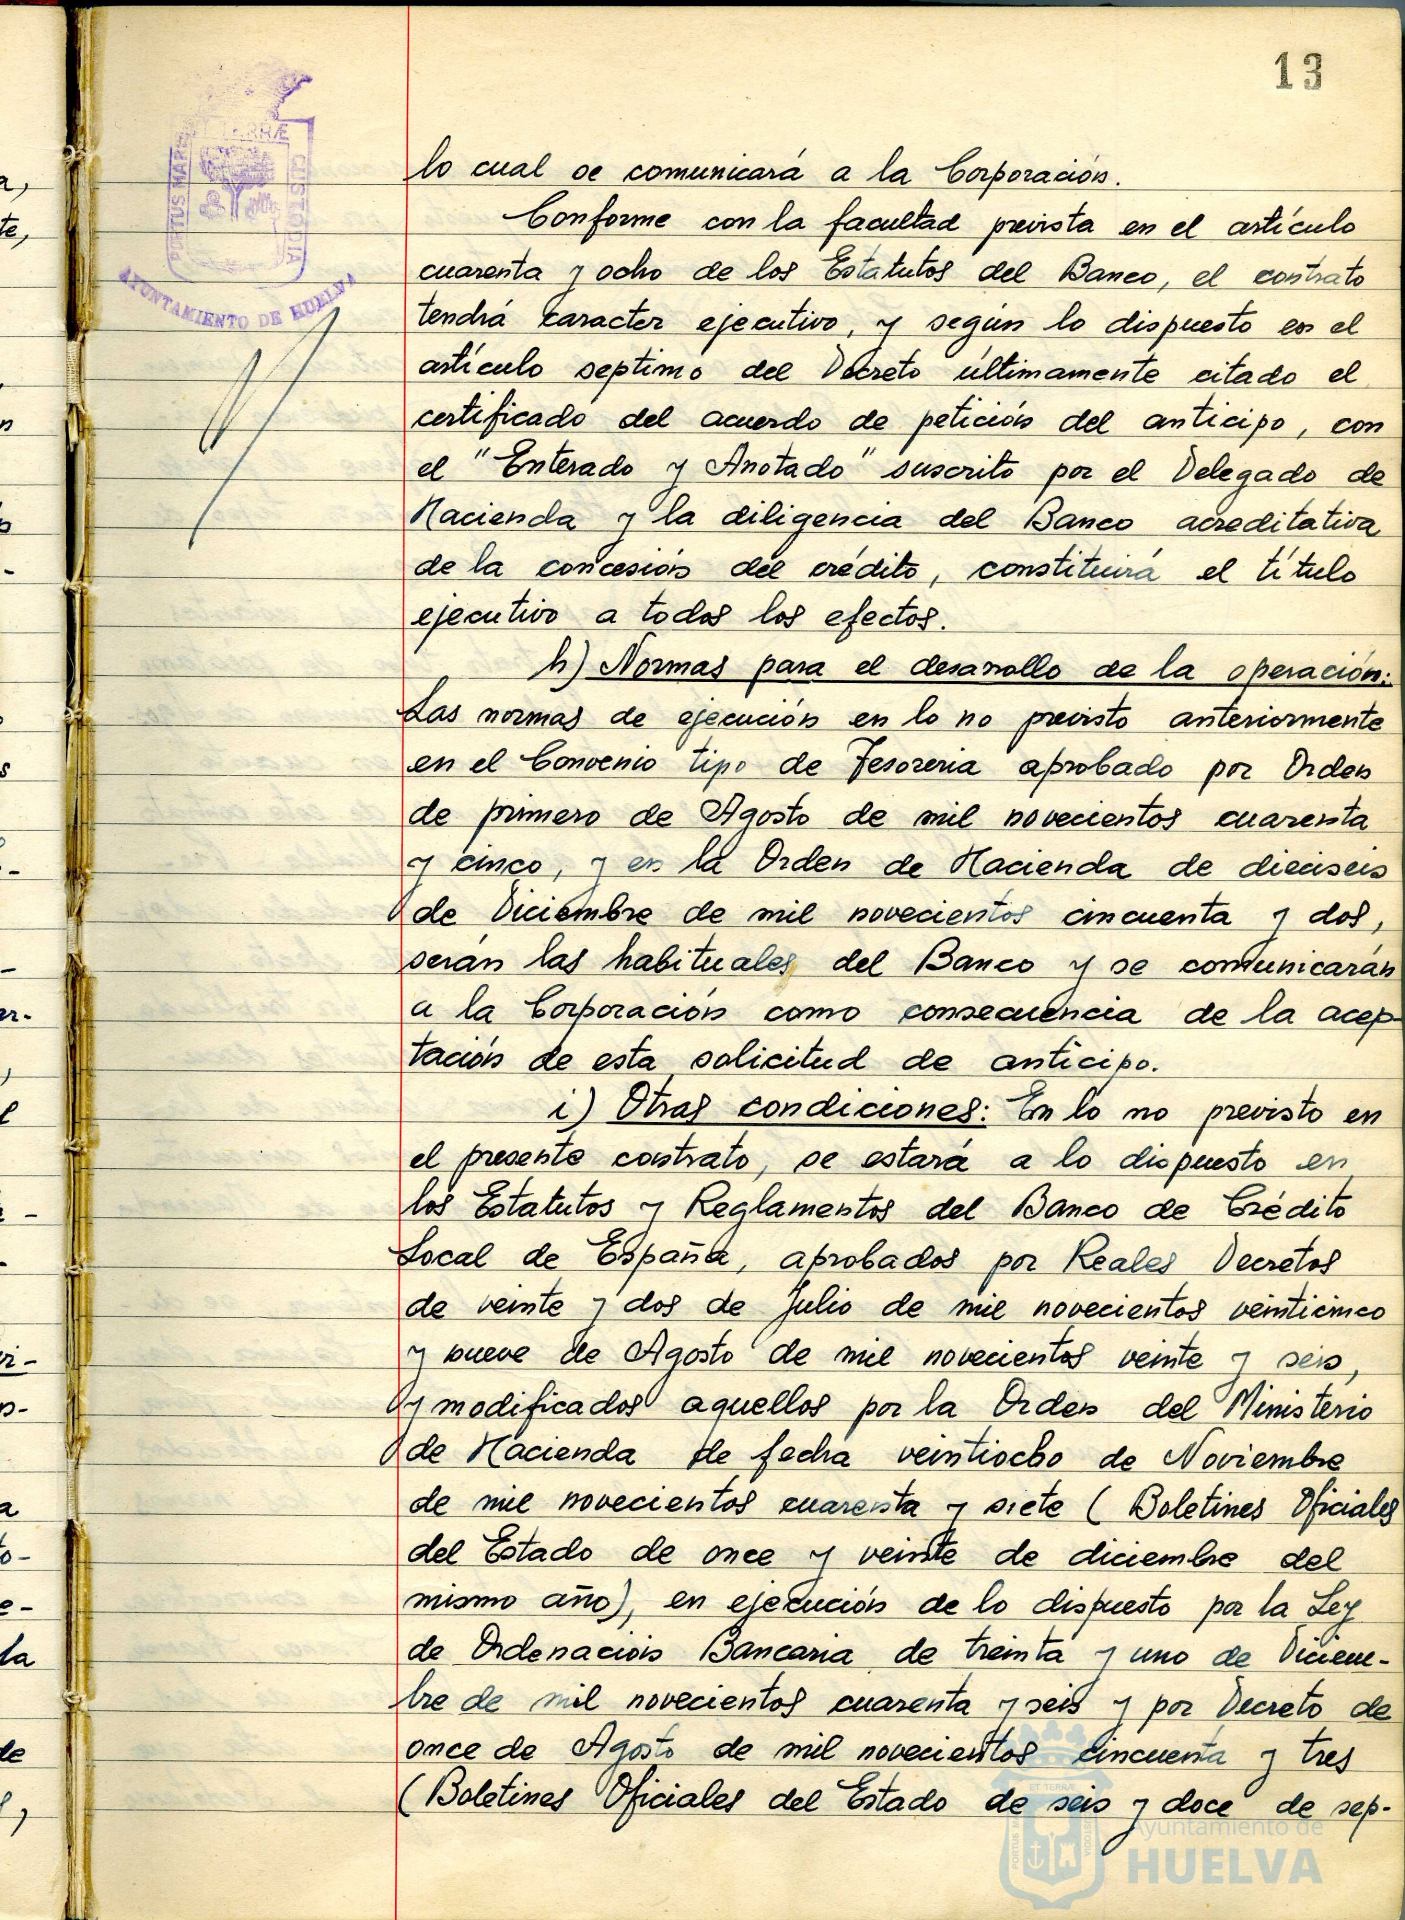 13
ET TERRÆ
PORTUS MARIS
CUSTODIA
AYUNTAMIENTO DE HUELVA
lo cual se comunicará a la Corporación.
Conforme con la facultad prevista en el artículo
cuarenta y ocho de los Estatutos del Banco, el contrato
tendrá caracter ejecutivo, y según lo dispuesto en el
artículo septimo del Decreto últimamente citado el
certificado del acuerdo de petición del anticipo, con
el "Enterado y Anotado" suscrito por el Delegado de
Hacienda y la diligencia del Banco acreditativa
de la concesión del crédito, constituirá el título
ejecutivo a todos los efectos.
h) Normas para el desarrollo de la operación:
Las normas de ejecución en lo no previsto anteriormente
en el Convenio tipo de Tesoreria aprobado por Orden
de primero de Agosto de mil novecientos cuarenta
y cinco, y en la Orden de Hacienda de dieciseis
de Diciembre de mil novecientos cincuenta y dos,
serán las habituales del Banco y se comunicarán
a la Corporación como consecuencia de la acep-
tación de esta solicitud de anticipo.
i) Otras condiciones: En lo no previsto en
el presente contrato, se estará a lo dispuesto en
los Estatutos y Reglamentos del Banco de Crédito
Local de España, aprobados por Reales Decretos
de veinte y dos de Julio de mil novecientos veinticinco
y nueve de Agosto de mil novecientos veinte y seis,
y modificados aquellos por la Orden del Ministerio
de Hacienda de fecha veintiocho de Noviembre
de mil novecientos cuarenta y siete ( Boletines Oficiales
del Estado de once y veinte de diciembre del
mismo año), en ejecución de lo dispuesto por la Ley
de Ordenación Bancaria de treinta y uno de Diciem-
bre de mil novecientos cuarenta y seis y por Decreto de
once de Agosto de mil novecientos cincuenta y tres
(Boletines Oficiales del Estado de seis y doce de sep-
Ayuntamiento de
HUELVA